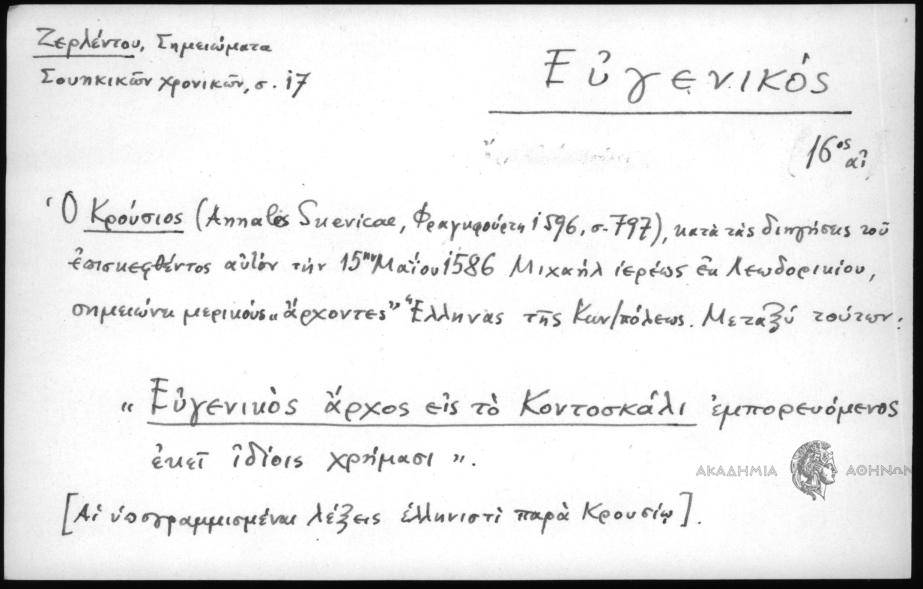 Ζερλέντου, Σημειώματα
Σουηκικῶν χρονικῶν, σ. 17
Εὐγενικός
16ος αἰ
Ὁ Κρούσιος (Annales Suevicae, Φραγκφούρτη 1596, σ. 797), κατὰ τὰς διηγήσεις τοῦ
ἐπισκεφθέντος αὐτὸν τὴν 15ην Μαΐου 1586 Μιχαὴλ ἱερέως ἐκ Λεωδορικίου,
σημειώνει μερικούς „ἄρχοντες" Ἕλληνας τῆς Κων/πόλεως. Μεταξὺ τούτων:
„Εὐγενικὸς ἄρχος εἰς τὸ Κοντοσκάλι ἐμπορευόμενος
ἐκεῖ ἰδίοις χρήμασι".
ΑΚΑΔΗΜΙΑ ΑΘΗΝΩΝ
[Αἱ ὑπογραμμισμέναι λέξεις ἑλληνιστὶ παρὰ Κρουσίῳ].